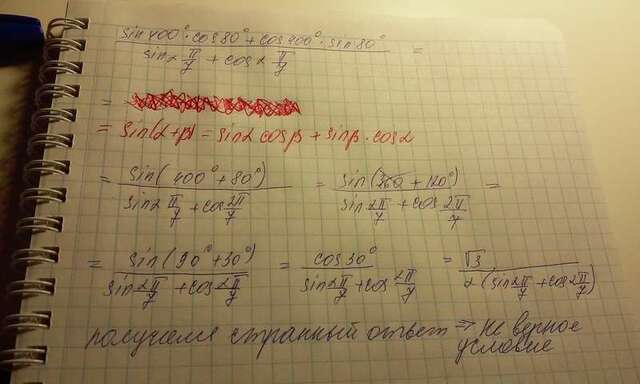 sin400°·cos80° + cos400°·sin80° / sin2 π/7 + cos2 π/7 =
=
= sin(α+β) = sinα cosβ + sinβ·cosα
= sin(400°+80°) / sin2 π/7 + cos 2π/7 = sin(360 + 120°) / sin 2π/7 + cos 2π/7 =
= sin(90° + 30°) / sin 2π/7 + cos 2π/7 = cos30° / sin 2π/7 + cos 2π/7 = √3 / 2(sin 2π/7 + cos 2π/7)
получился странный ответ ⇒ не верное
условие